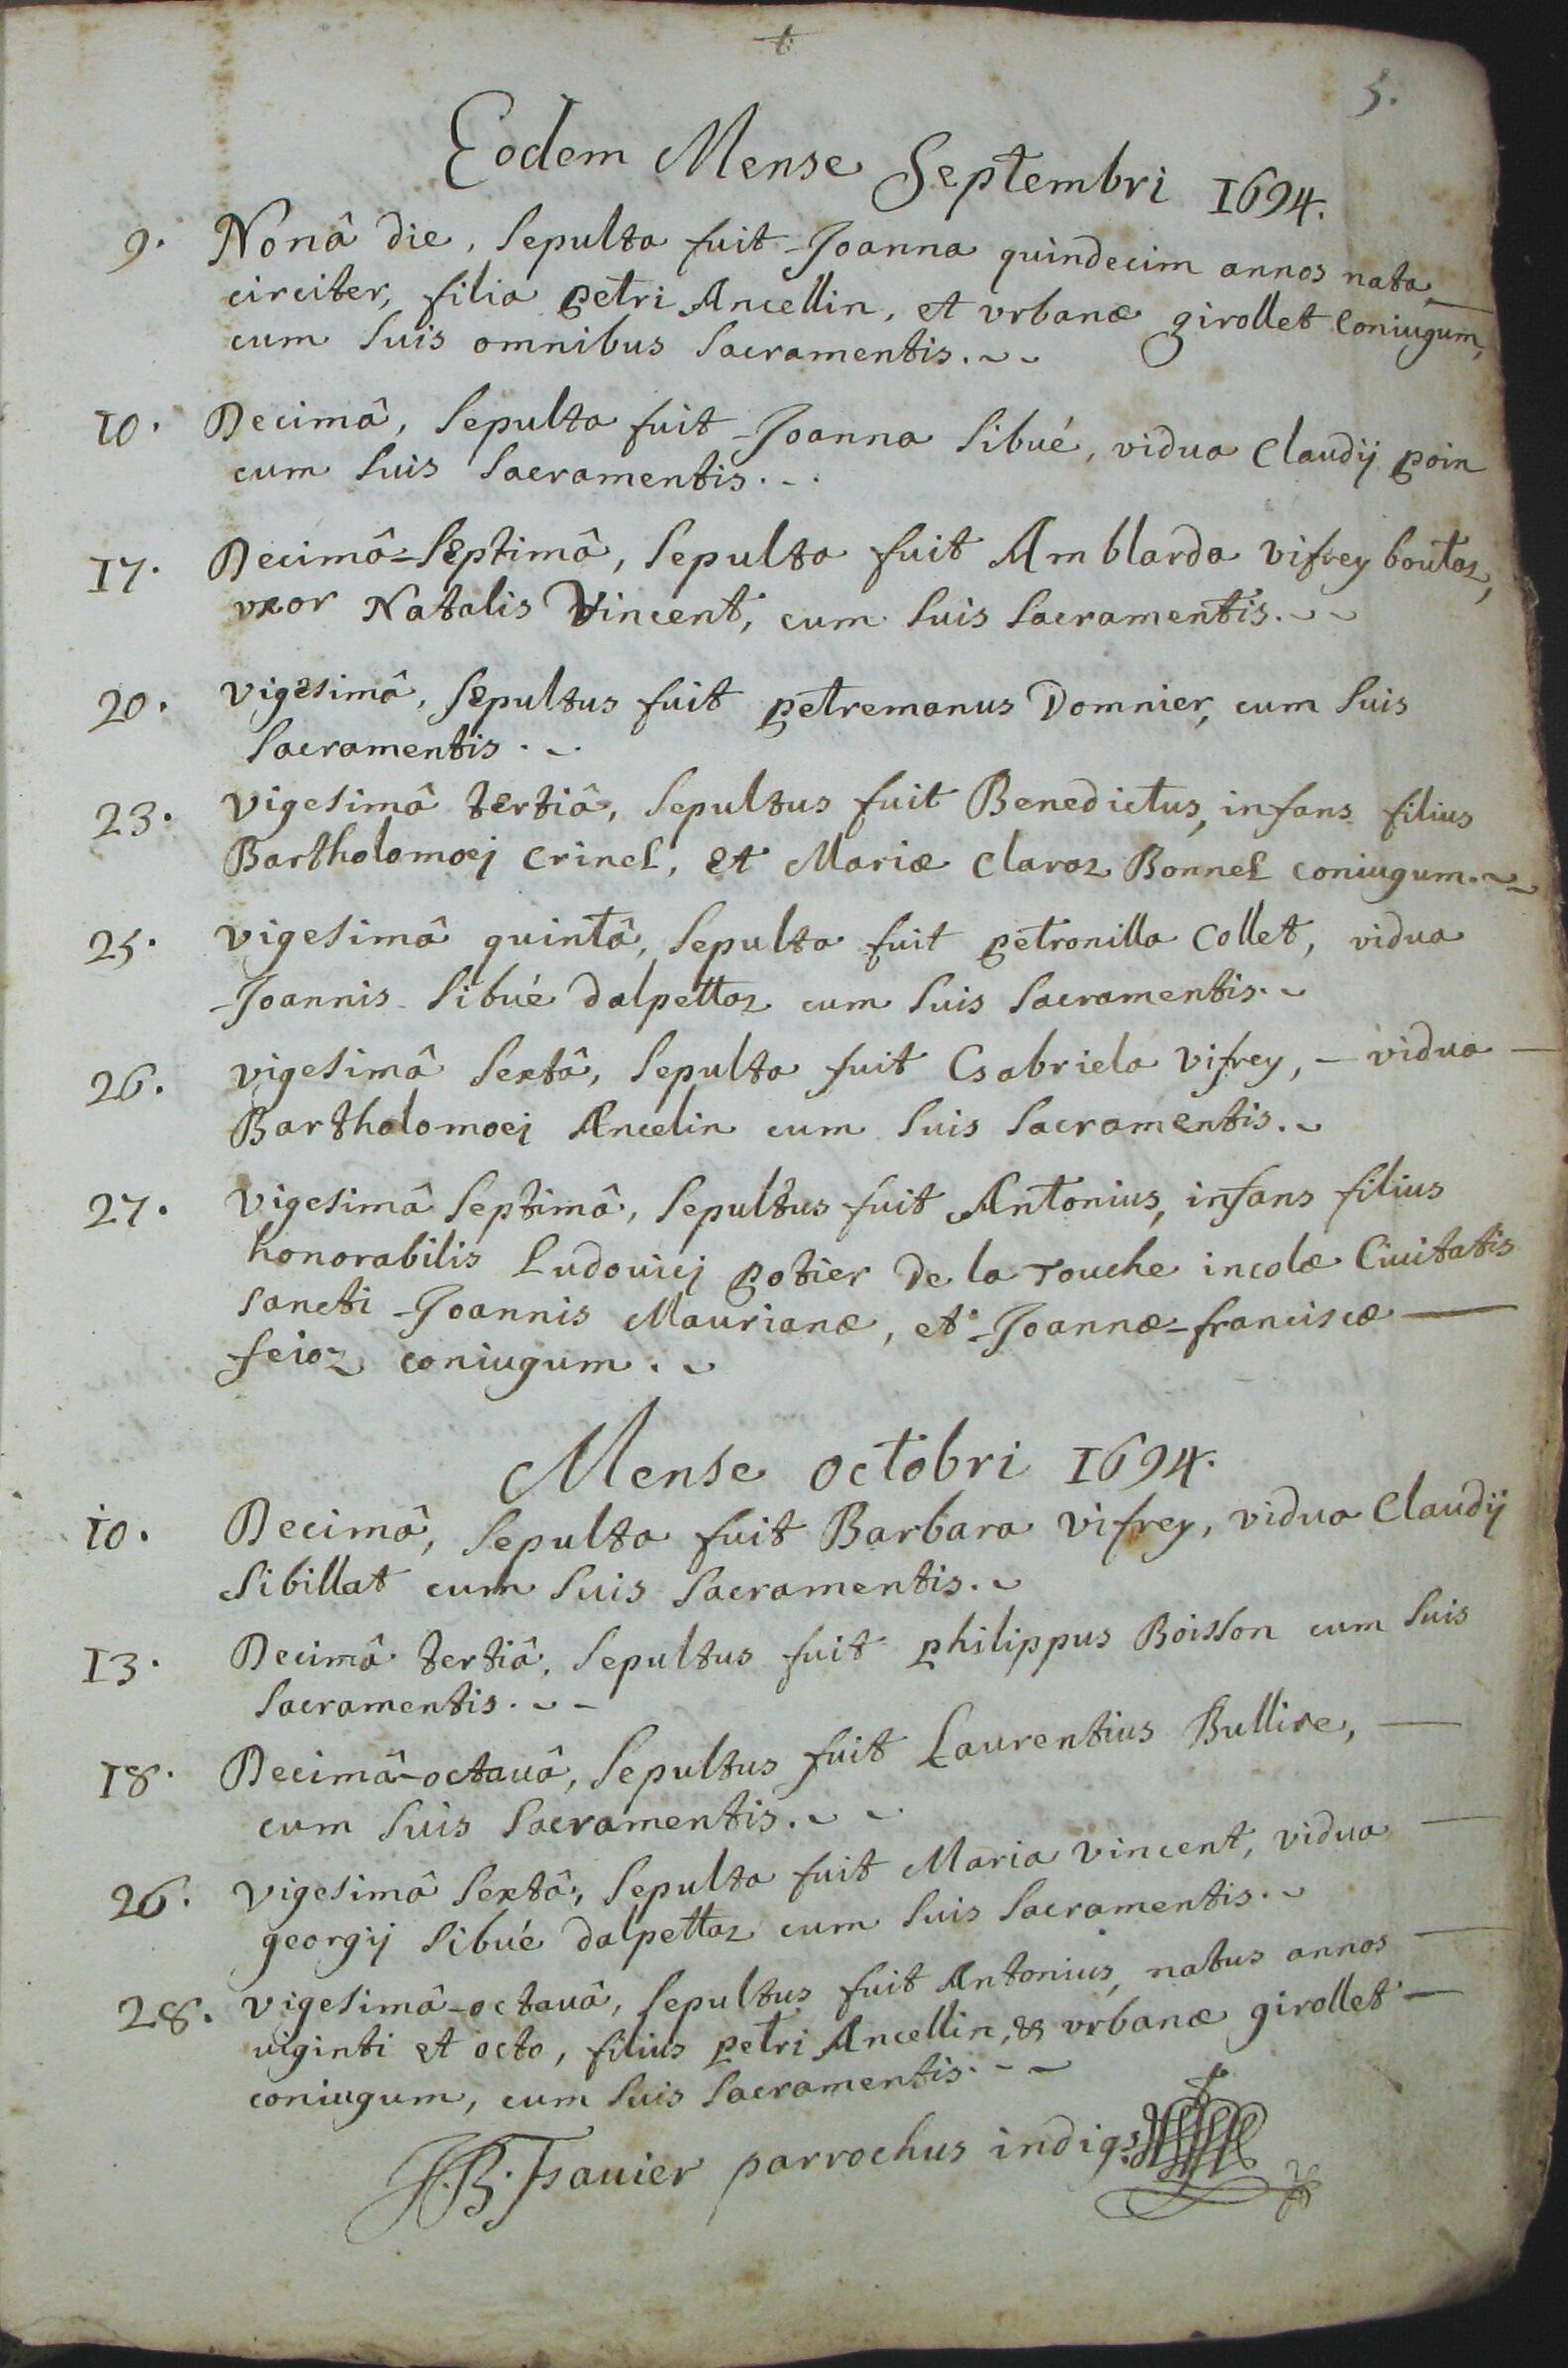 5.
Eodem Mense Septembri 1694.
9. Nonâ die, sepulta fuit Joanna quindecim annos nata
circiter, filia petri Ancellin, et vrbanæ girollet coniugum,
cum suis omnibus sacramentis.
10. Decimâ, sepulta fuit Joanna sibué, vidua Claudij poin
cum suis sacramentis.
17. Decimâ-septimâ, sepulta fuit Amblarda vifrey boutaz,
vxor Natalis Vincent, cum suis sacramentis.
20. vigesimâ, sepultus fuit petremanus Domnier, cum suis
sacramentis.
23. vigesimâ tertiâ, sepultus fuit Benedictus, infans filius
Bartholomæj crinel, et Mariæ claraz Bonnel coniugum.
25. vigesimâ quintâ, sepulta fuit petronilla collet, vidua
Joannis sibué dalpettaz cum suis sacramentis.
26. vigesimâ sextâ, sepulta fuit Gabriela vifrey, - vidua -
Bartholomæj Ancelin cum suis sacramentis.
27. vigesimâ septimâ, sepultus fuit Antonius, infans filius
honorabilis Ludouicj potier de la rouche incolæ Ciuitatis
sancti Joannis Maurianæ, et Joannæ-franciscæ
feioz coniugum.
Mense octobri 1694.
10. Decimâ, sepulta fuit Barbara vifrey, vidua Claudij
sibillat cum suis sacramentis.
13. Decimâ tertiâ, sepultus fuit philippus Boisson cum suis
sacramentis.
18. Decimâ-octauâ, sepultus fuit Laurentius Bullire,
cum suis sacramentis.
26. vigesimâ sextâ, sepulta fuit Maria vincent, vidua
georgij sibué dalpettaz cum suis sacramentis.
28. vigesimâ-octauâ, sepultus fuit Antonius, natus annos
uiginti et octo, filius petri Ancellin, & vrbanæ girollet
coniugum, cum suis sacramentis.
parrochus indigs.